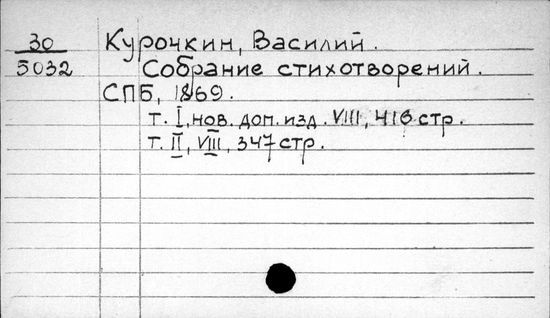 30 Курочкин, Василий.
5032 Собрание стихотворений.
СПБ, 1869.
т. I, нов. доп. изд. VIII, 416 стр.
т. II, VIII, 347 стр.